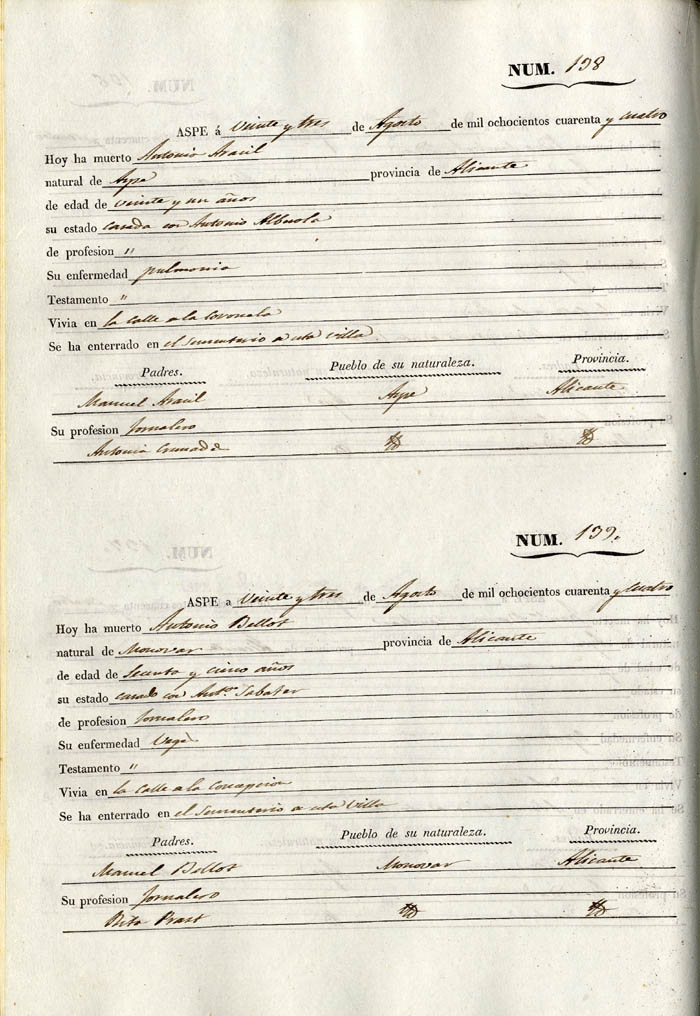 NUM. 138
ASPE á veinte y tres de Agosto de mil ochocientos cuarenta y cuatro
Hoy ha muerto Antonia Aracil
natural de Aspe provincia de Alicante
de edad de veinte y un años
su estado casada con Antonio Alberola
de profesion "
Su enfermedad pulmonia
Testamento "
Vivia en la calle a la Coronela
Se ha enterrado en el Sementerio a esta villa
Padres. Pueblo de su naturaleza. Provincia.
Manuel Aracil Aspe Alicante
Su profesion Jornalero
Antonia Cremade
NUM. 139.
ASPE a veinte y tres de Agosto de mil ochocientos cuarenta y cuatro
Hoy ha muerto Antonio Bellot
natural de Monovar provincia de Alicante
de edad de Secenta y cinco años
su estado casado con Ant.ª Sabater
de profesion Jornalero
Su enfermedad
Testamento "
Vivia en la calle a la Concepcion
Se ha enterrado en el Sementerio a esta Villa
Padres. Pueblo de su naturaleza. Provincia.
Manuel Bellot Monovar Alicante
Su profesion Jornalero
Rita